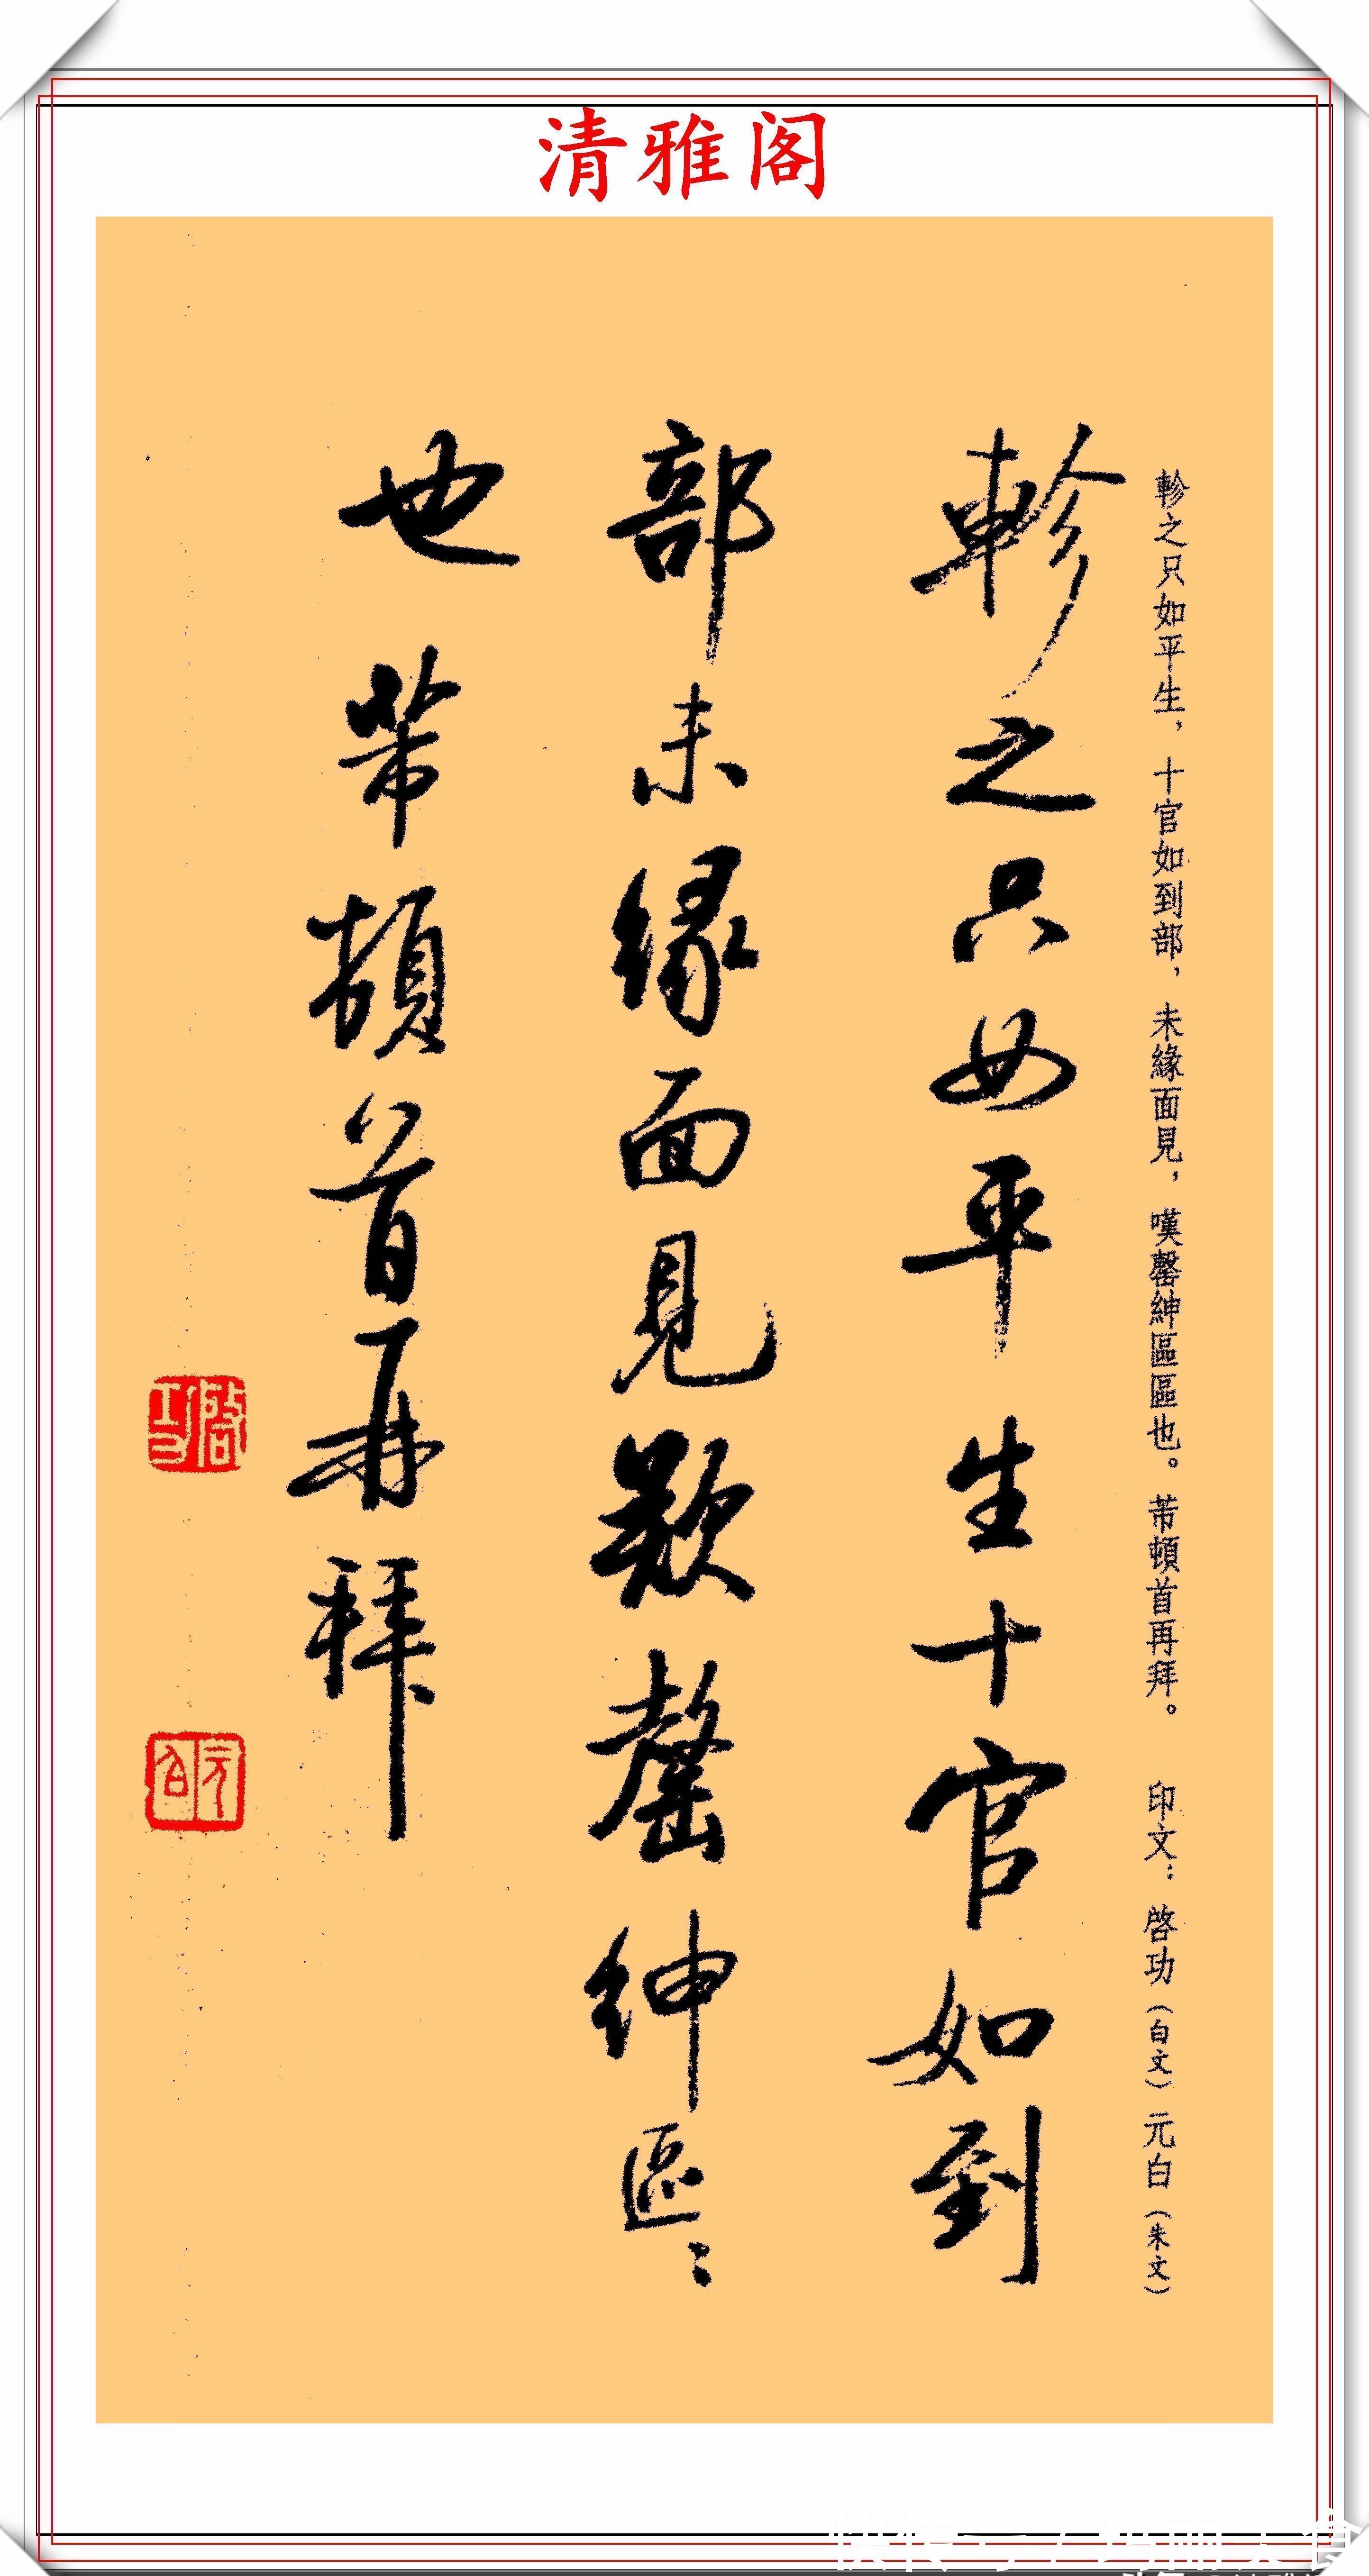 清雅阁
軫之只如平生，十官如到部，未緣面見，嘆罄紳區區也。芾頓首再拜。　印文：啓功（白文）元白（朱文）
軫之只如平生十官如到
部未緣面見歎罄紳區〻
也芾頓首再拜
啓功
元白